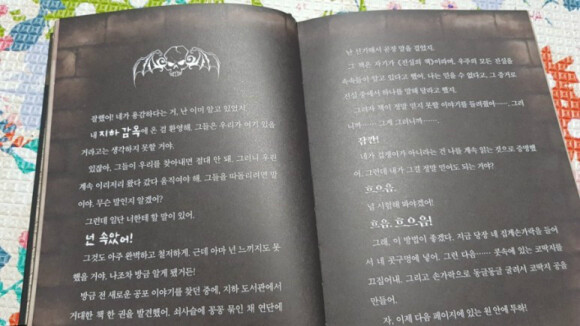 잘했어! 네가 용감하다는 거, 난 이미 알고 있었지.
내 지하 감옥에 온 걸 환영해. 그들은 우리가 여기 있을
거라고는 생각하지 못할 거야.
있잖아, 그들이 우리를 찾아내면 절대 안 돼. 그러니 우린
계속 이리저리 왔다 갔다 움직여야 해. 그들을 따돌리려면 말
이야. 무슨 말인지 알겠어?
그런데 일단 너한테 할 말이 있어.
넌 속았어!
그것도 아주 완벽하고 철저하게. 근데 아마 넌 느끼지도 못
했을 거야. 나조차 방금 알게 됐거든!
방금 전 새로운 공포 이야기를 찾던 중에, 지하 도서관에서
거대한 책 한 권을 발견했어. 쇠사슬에 꽁꽁 묶인 채 연단에
난 신기해서 공경 말을 걸었지.
그 책은 자기가 《진실의 책》이라며, 우주의 모든 진실을
속속들이 알고 있다고 했어. 나는 믿을 수 없다고, 그 증거로
진실 중에서 하나를 말해 달라고 했지.
그러자 책이 정말 믿지 못할 이야기를 들려줬어……. 그러
니까……. 그게 그러니까…….
잠깐!
네가 겁쟁이가 아니라는 건 나를 계속 읽는 것으로 증명했
어. 그런데 내가 그걸 정말 믿어도 되는 거야?
흐으음.
널 시험해 봐야겠어!
흐음, 흐으음!
그래, 이 방법이 좋겠다. 지금 당장 네 집게손가락을 들어
서 네 콧구멍에 넣어. 그런 다음…… 콧속에 있는 코딱지를
끄집어내. 그리고 손가락으로 동글동글 굴려서 코딱지 공을
만들어.
자, 이제 다음 페이지에 있는 원 안에 투하!